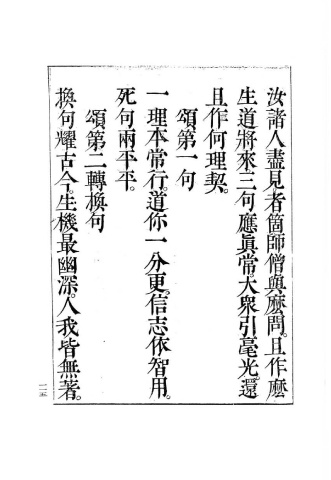 汝諸人盡見者箇師僧與麼問。且作麼
生道將來三句應眞常。大衆引毫光。還
且作何理契。
頌第一句
一理本常行。道你一分更。信志依智用。
死句兩平平。
頌第二轉換句
換句耀古今。生機最幽深。人我皆無著。
二五